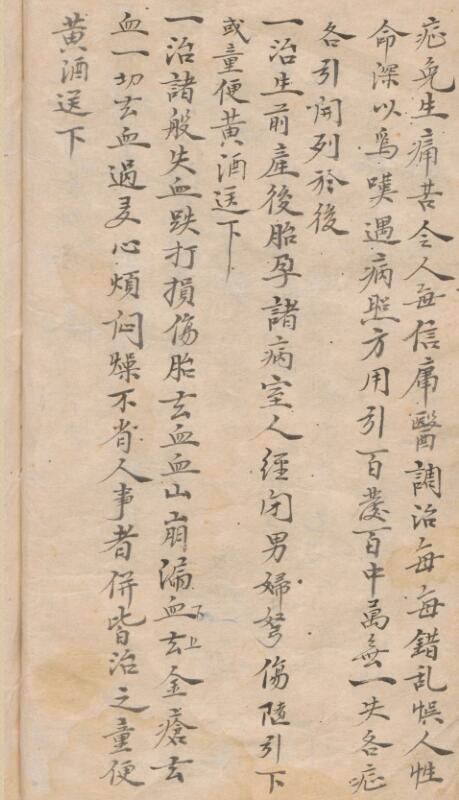 症免生痛苦令人每信庸醫調治每每錯乱悞人性
命深以爲嘆遇病照方用引百發百中萬無一失各症
各引開列於後
一治生前產後胎孕諸病室人經闭男婦努傷陡引下
或童便黄酒送下
一治諸般失血跌打損傷胎去血血山崩漏血下上去金瘡去
血一切去血過多心煩闷燥不省人事者併皆治之童便
黄酒送下